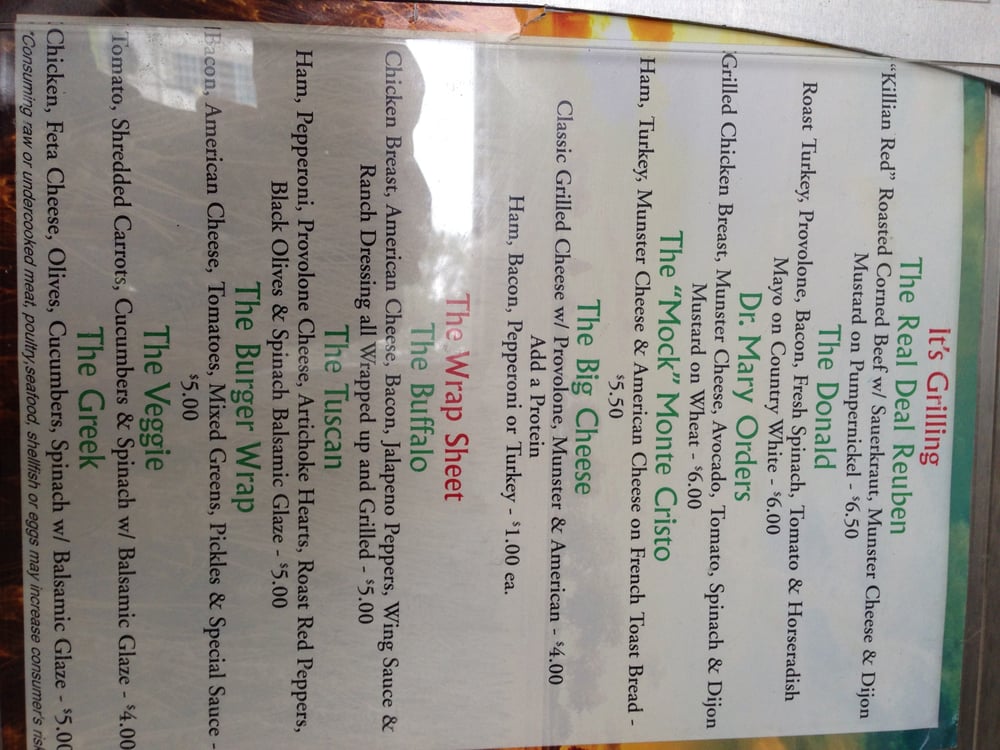 it's Grilling
The Real Deal Reuben
"Killian Red" Roasted Corned Beef w/ Sauerkraut, Munster Cheese & Dijon
Mustard on Pumpernickel - $6.50
The Donald
Roast Turkey, Provolone, Bacon, Fresh Spinach, Tomato & Horseradish
Mayo on Country White - $6.00
Dr. Mary Orders
Grilled Chicken Breast, Munster Cheese, Avocado, Tomato, Spinach & Dijon
Mustard on Wheat - $6.00
The "Mock" Monte Cristo
Ham, Turkey, Munster Cheese & American Cheese on French Toast Bread -
$5.50
The Big Cheese
Classic Grilled Cheese w/ Provolone, Munster & American - $4.00
Add a Protein
Ham, Bacon, Pepperoni or Turkey - $1.00 ea.
The Wrap Sheet
The Buffalo
Chicken Breast, American Cheese, Bacon, Jalapeno Peppers, Wing Sauce &
Ranch Dressing all Wrapped up and Grilled - $5.00
The Tuscan
Ham, Pepperoni, Provolone Cheese, Artichoke Hearts, Roast Red Peppers,
Black Olives & Spinach Balsamic Glaze - $5.00
The Burger Wrap
Bacon, American Cheese, Tomatoes, Mixed Greens, Pickles & Special Sauce -
$5.00
The Veggie
Tomato, Shredded Carrots, Cucumbers & Spinach w/ Balsamic Glaze - $4.00
The Greek
Chicken, Feta Cheese, Olives, Cucumbers, Spinach w/ Balsamic Glaze - $5.00
*Consuming raw or undercooked meat, poultry,seafood, shellfish or eggs may increase consumer's risk